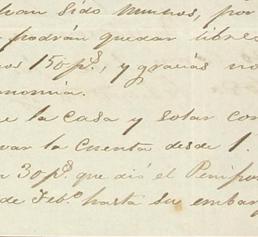 han sido muchos, por
podrán quedar libres
os 150 p.s, y gracias no
onomia.
e la casa y solar con
var la cuenta desde 1.
30 p.s que dió el
de Feb.o hasta su embar